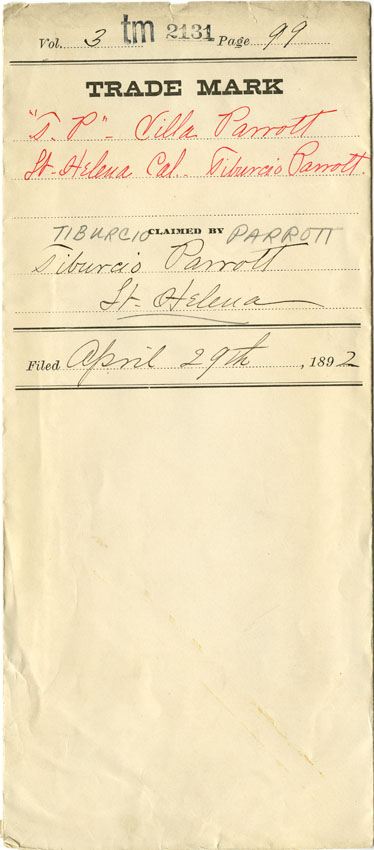 Vol. 3 tm 2131 Page 99
TRADE MARK
"T. P" - Villa Parrott
St. Helena Cal. Tiburcio Parrott.
TIBURCIO CLAIMED BY PARROTT
Tiburcio Parrott
St. Helena
Filed April 29th, 1892